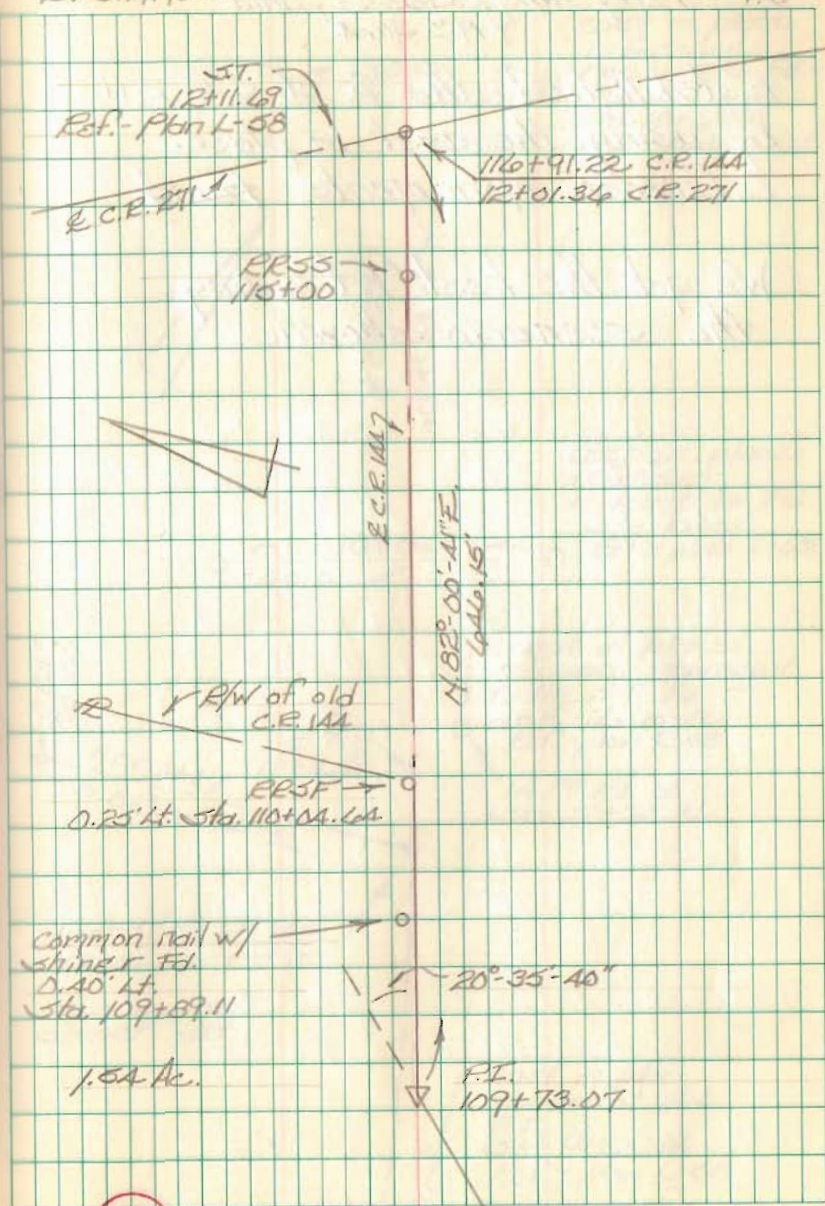 S.T.
12+11.69
Ref.- Plan L-58
116+91.22 C.R. 144
12+01.36 C.R. 271
℄ C.R. 271
RRSS
115+00
℄ C.R. 144
N.82°-00'-41"E.
646.15'
℄
R/W of old
C.R. 144
RRSF
0.25' Lt. Sta. 110+04.64
Common nail w/
shiner Fd.
0.40' Lt.
Sta. 109+89.11
20°-35'-40"
1.54 Ac.
P.I.
109+73.07